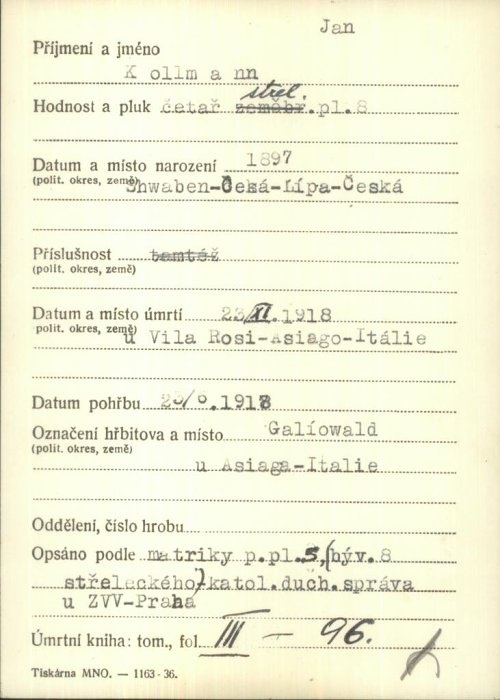 Jan
Příjmení a jméno
K ollm a nn
střel.
Hodnost a pluk četař zeměbr.pl.8
Datum a místo narození 1897
(polit. okres, země) Shwaben-Česká-Lípa-Česká
Příslušnost tamtéž
(polit. okres, země)
Datum a místo úmrtí 23/XI.1918
polit. okres, země) u Vila Rosi-Asiago-Itálie
Datum pohřbu .1918
Označení hřbitova a místo Galíowald
(polit. okres, země)
u Asiaga-Italie
Oddělení, číslo hrobu
Opsáno podle matriky p.pl.3,(býv.8
střeleckého) katol.duch.správa
u ZVV-Praha
Úmrtní kniha: tom., fol. III — 96.
Tiskárna MNO. — 1163-36.